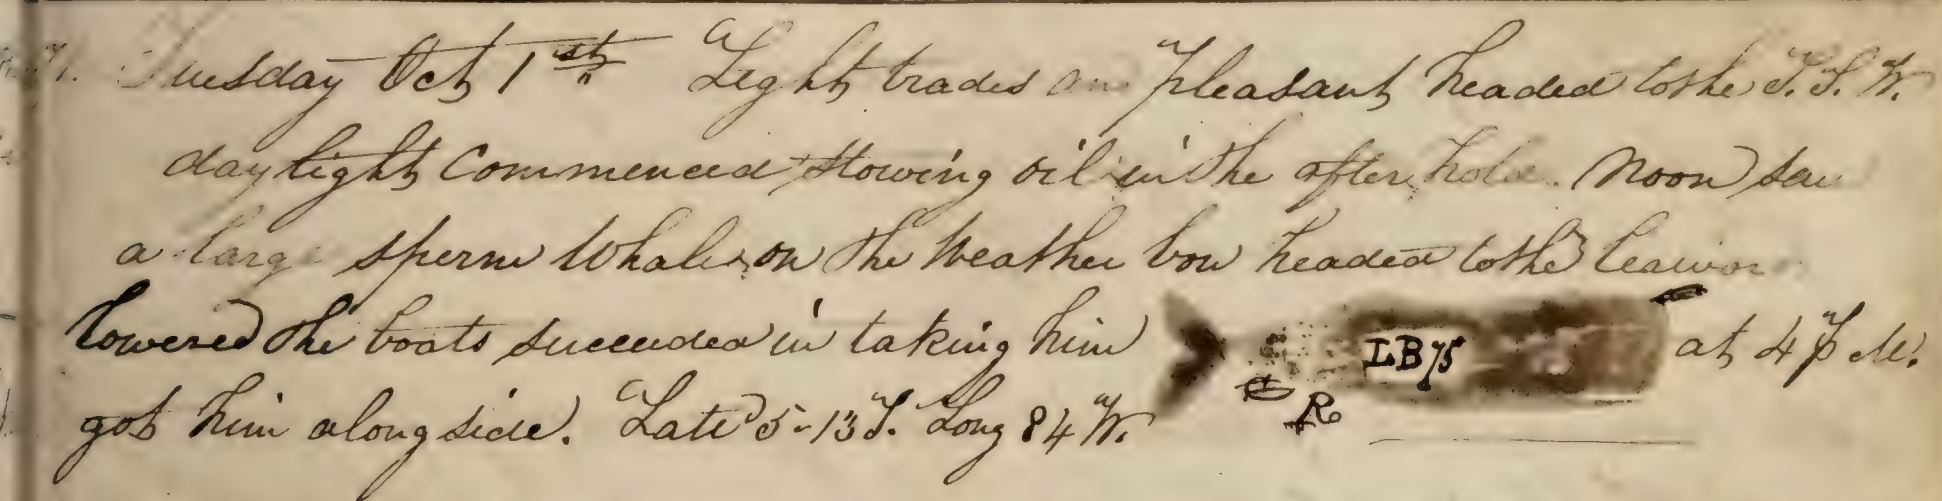 Tuesday Oct 1st Light trades an pleasant headed to the S.S.W.
daylight Commenced stowing oil in the after hold. Noon saw
a large sperm Whale on the Weather bow headed to the leeward
lowered the boats succeeded in taking him LB 75 at 4 P M.
R
got him alongside. Late 5-13 S. Long 84 W.